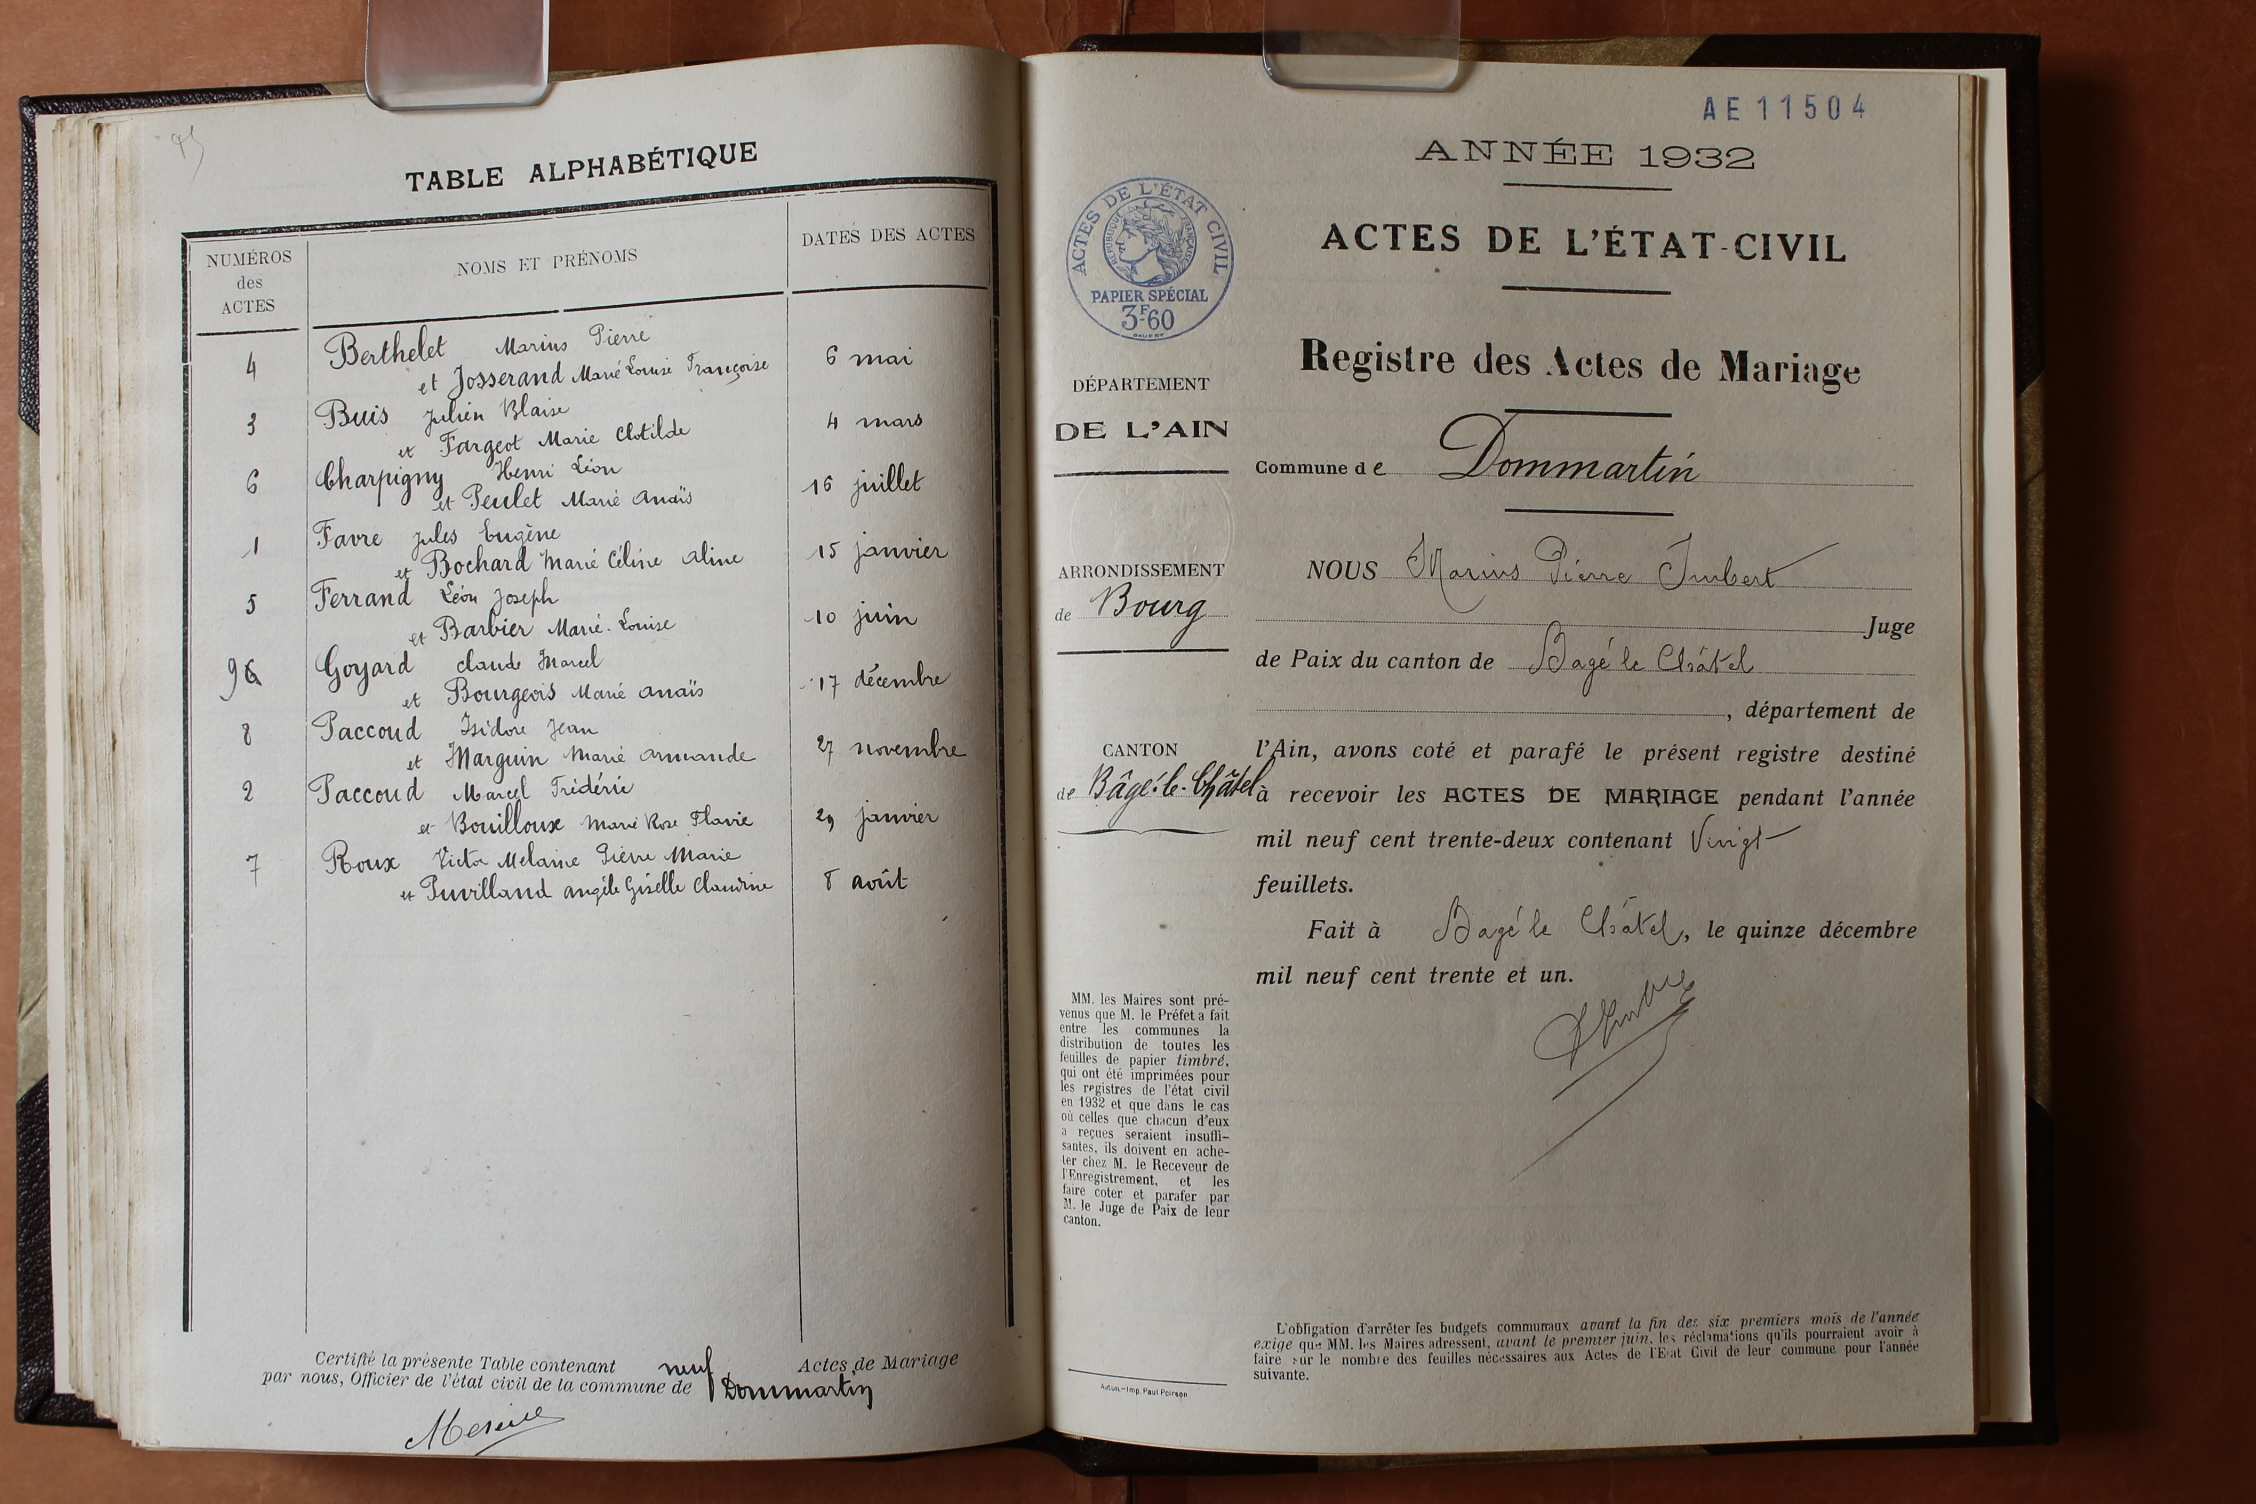 95
TABLE ALPHABÉTIQUE
NUMÉROS
des
ACTES
NOMS ET PRÉNOMS
DATES DES ACTES
4 Berthelet Marius Pierre
et Josserand Marie Louise Françoise 6 mai
3 Buis Julien Blaise
et Fargeot Marie Clotilde 4 mars
6 Charpigny Henri Léon
et Peulet Marie Anaïs 16 juillet
1 Favre Jules Eugène
et Bochard Marie Céline Aline 15 janvier
5 Ferrand Léon Joseph
et Barbier Marie-Louise 10 juin
9 Goyard Claude Marcel
et Bourgeois Marie Anaïs 17 décembre
8 Paccoud Isidore Jean
et Marguin Marie Armande 27 novembre
2 Paccoud Marcel Frédéric
et Bouilloux Marie Rose Flavie 29 janvier
7 Roux Victor Melaine Pierre Marie
et Puvilland Angèle Giselle Claudine 8 août
Certifié la présente Table contenant neuf Actes de Mariage
par nous, Officier de l'état civil de la commune de Dommartin
AE 11504
ANNÉE 1932
ACTES DE L'ÉTAT-CIVIL
Registre des Actes de Mariage
ACTES DE L'ÉTAT CIVIL
RÉPUBLIQUE FRANÇAISE
PAPIER SPÉCIAL
3F60
DÉPARTEMENT
DE L'AIN
ARRONDISSEMENT
de Bourg
CANTON
de Bâgé-le-Châtel
MM. les Maires sont pré-
venus que M. le Préfet a fait
entre les communes la
distribution de toutes les
feuilles de papier timbré,
qui ont été imprimées pour
les registres de l'état civil
en 1932 et que dans le cas
où celles que chacun d'eux
a reçues seraient insuffi-
santes, ils doivent en ache-
ter chez M. le Receveur de
l'Enregistrement, et les
faire coter et parafer par
M. le Juge de Paix de leur
canton.
Autun.—Imp. Paul Poirson
Commune de Dommartin
NOUS Marius Pierre Imbert
Juge
de Paix du canton de Bagé le Châtel
, département de
l'Ain, avons coté et parafé le présent registre destiné
à recevoir les ACTES DE MARIAGE pendant l'année
mil neuf cent trente-deux contenant Vingt
feuillets.
Fait à Bagé le Châtel, le quinze décembre
mil neuf cent trente et un.
L'obligation d'arrêter les budgets communaux avant la fin des six premiers mois de l'année
exige que MM. les Maires adressent, avant le premier juin, les réclamations qu'ils pourraient avoir à
faire sur le nombre des feuilles nécessaires aux Actes de l'Etat Civil de leur commune pour l'année
suivante.